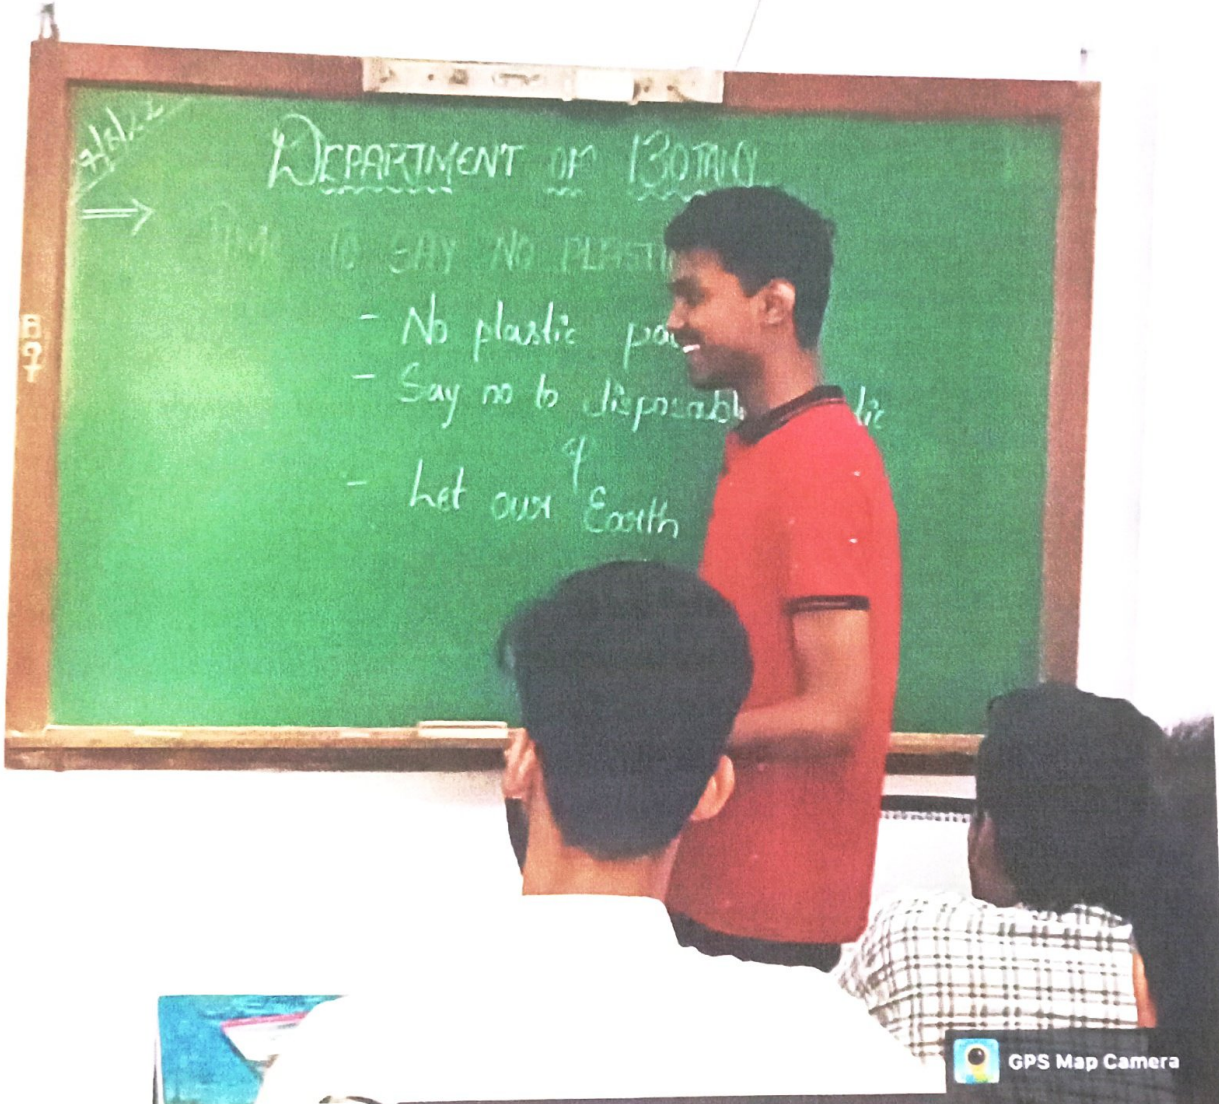 7/6/22
DEPARTMENT OF BOTANY
TIME TO SAY NO PLASTI
- No plastic
- Say no to disposabl tic
&
- Let our Earth
GPS Map Camera